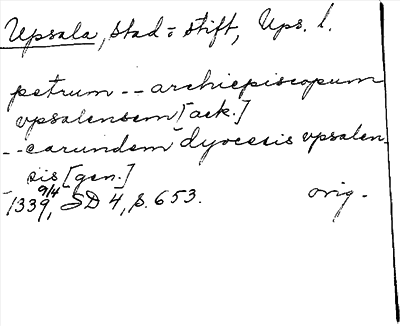 Upsala, stad o stift, Ups. l.
petrum -- archiepiscopum
vpsalensem [ack.]
-- earundem dyocesis vpsalen-
sis [gen.]
1339 9/4, SD 4, s. 653. orig.